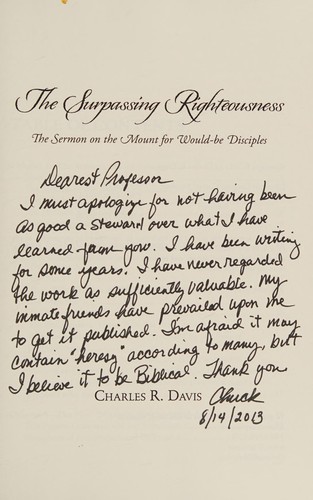 The Surpassing Righteousness
The Sermon on the Mount for Would-be Disciples
Dearest Professor
I must apologize for not having been
as good a steward over what I have
learned from you. I have been writing
for some years. I have never regarded
the work as sufficiently valuable. My
inmate friends have prevailed upon me
to get it published. I'm afraid it may
contain "heresy" according to many, but
I believe it to be Biblical. Thank you
CHARLES R. DAVIS Chuck
8/14/2013